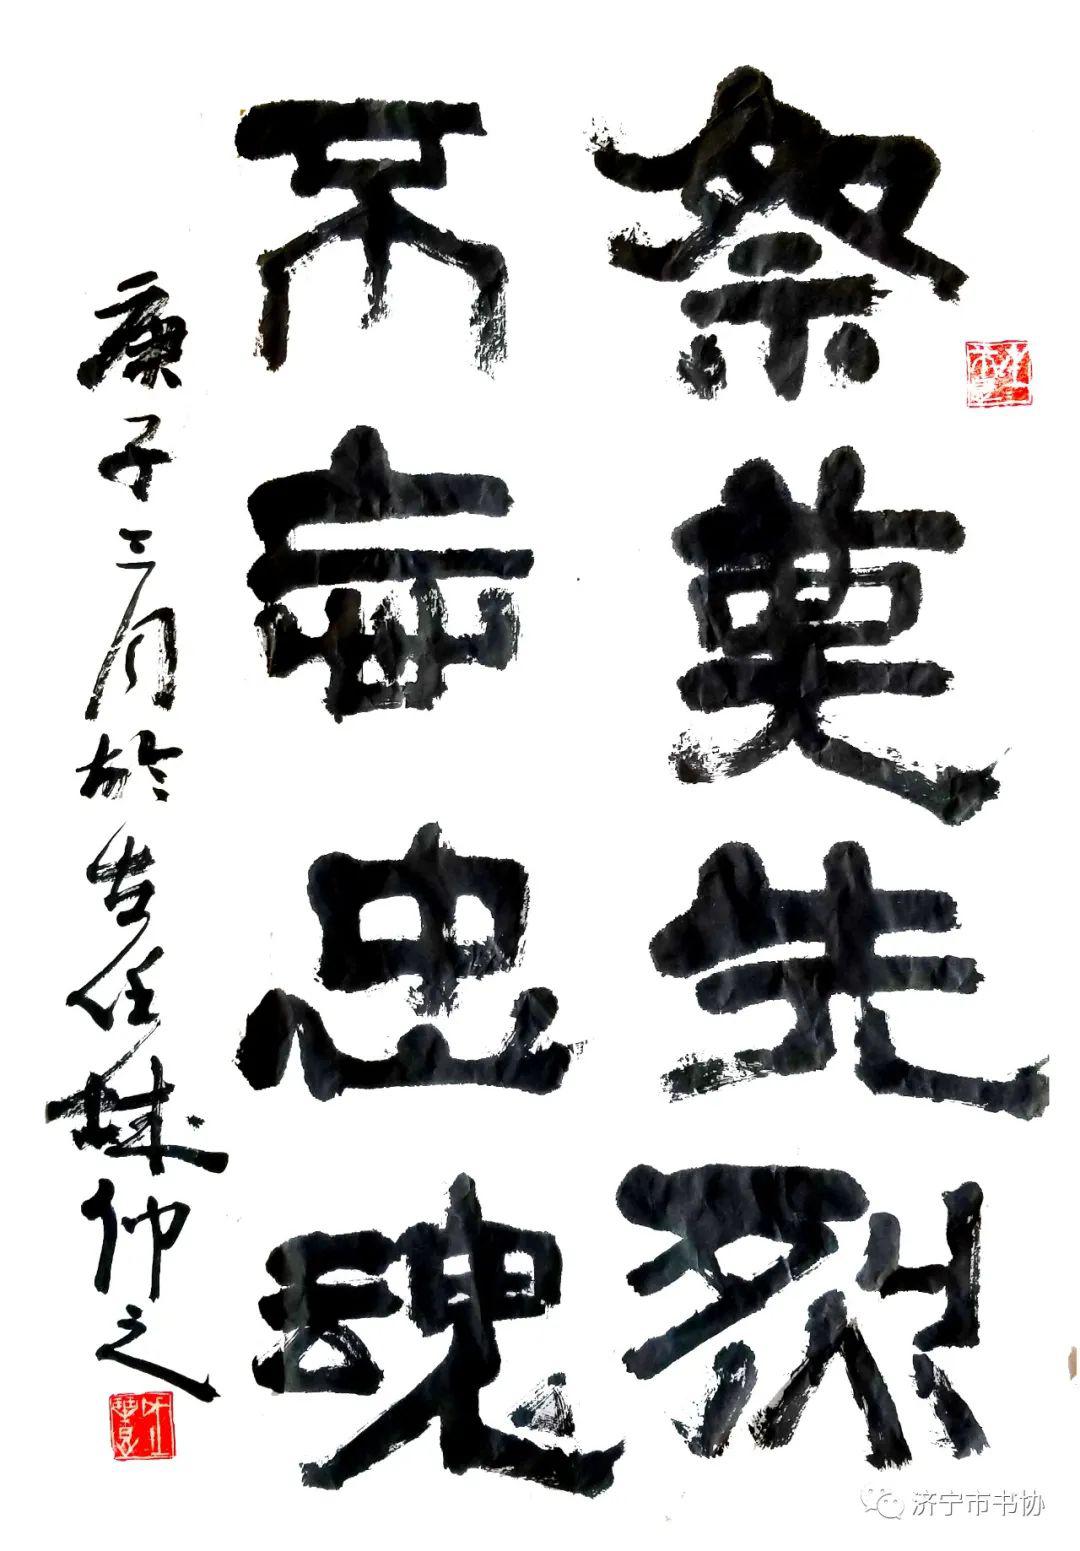 祭奠先烈
不忘忠魂
庚子三月於古任城仲之
济宁市书协